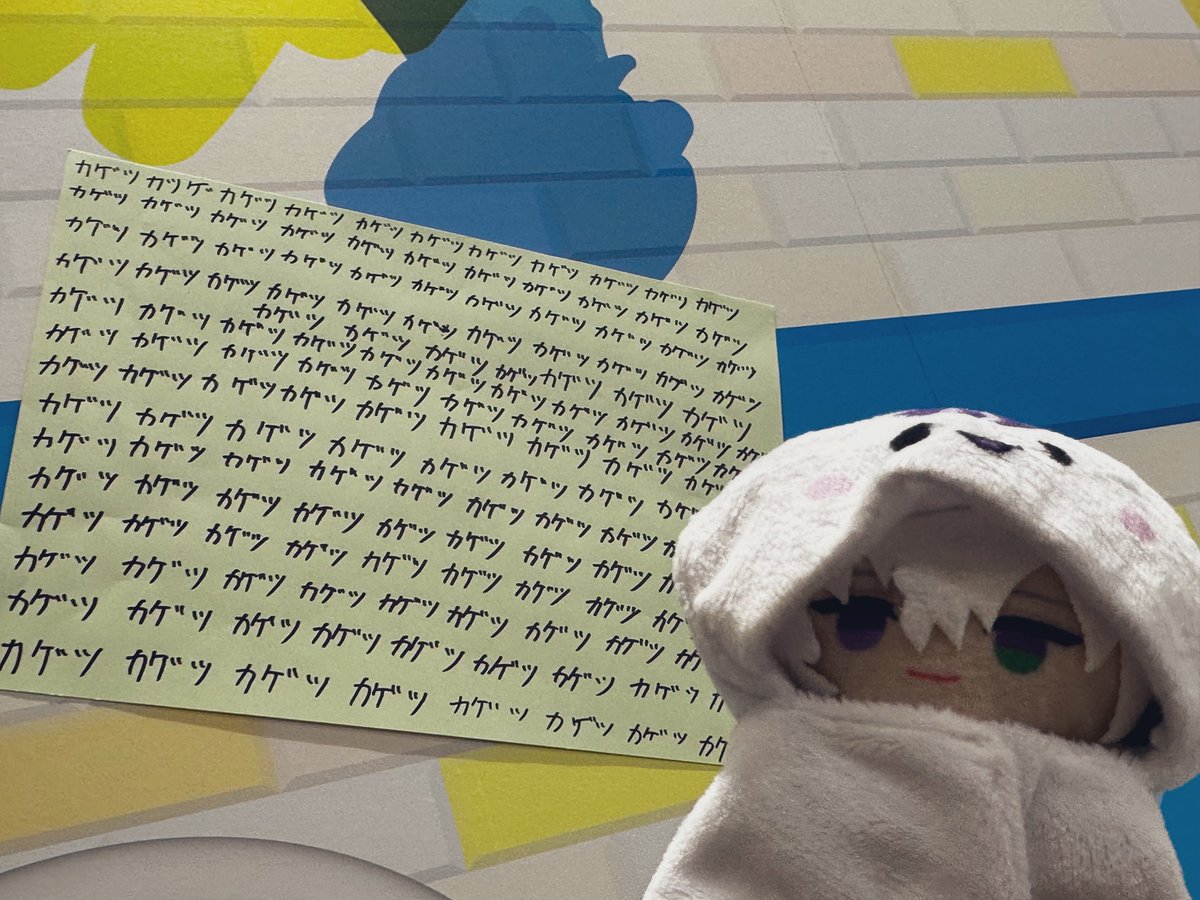 カゲツ カツゲ カゲツ カゲツ カゲツ カゲツ カゲツ カゲツ カゲツ カゲツ カゲツ
カゲツ カゲツ カゲツ カゲツ カゲツ カゲツ カゲツ カゲツ カゲツ カゲツ カゲツ
カゲツ カゲツ カゲツ カゲツ カゲツ カゲツ カゲツ カゲツ カゲツ カゲツ カゲツ
カゲツ カゲツ カゲツ カゲツ カゲツ カゲツ カゲツ カゲツ カゲツ カゲツ カゲツ
カゲツ カゲツ カゲツ カゲツ カゲツ カゲツ カゲツ
カゲツ カゲツ カゲツ カゲツ カゲツ カゲツ カゲツ カゲツ カゲツ カゲツ
カゲツ カゲツ カゲツ カゲツ カゲツ カゲツ カゲツ カゲツ カゲツ カゲ
カゲツ カゲツ カゲツ カゲツ カゲツ カゲツ カゲツ カゲツ カゲツ
カゲツ カゲツ カゲツ カゲツ カゲツ カゲツ カゲツ カゲツ
カゲツ カゲツ カゲツ カゲツ カゲツ カゲツ カゲツ カゲツ カ
カゲツ カゲツ カゲツ カゲツ カゲツ カゲツ カゲツ カゲツ カ
カゲツ カゲツ カゲツ カゲツ カゲツ カゲツ カゲツ カゲツ カゲ
カゲツ カゲツ カゲツ カゲツ カゲツ カゲツ カゲツ カゲツ カゲ
カゲツ カゲツ カゲツ カゲツ カゲツ カゲツ カゲツ カゲツ カ
カゲツ カゲツ カゲツ カゲツ カゲツ カゲツ カゲツ カゲ